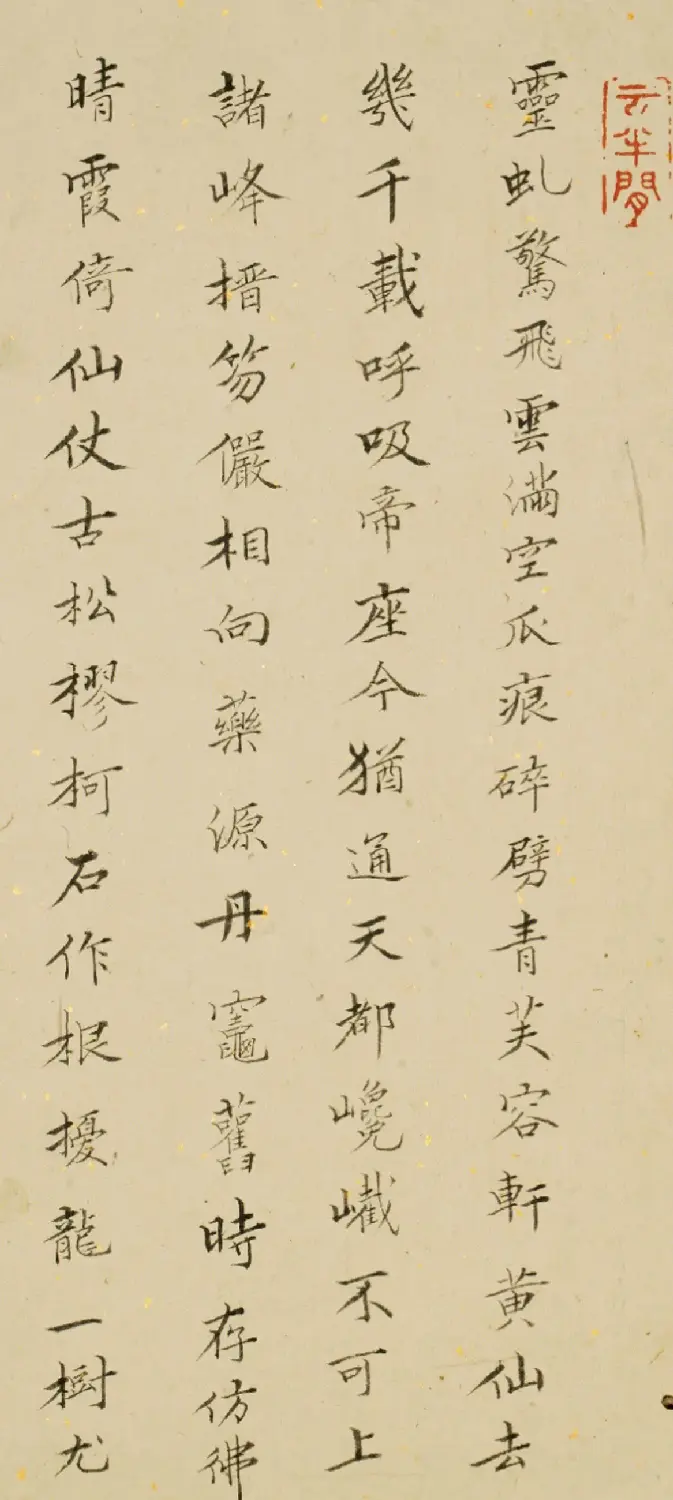 云半間
靈虬驚飛雲滿空爪痕碎劈青芙容軒黃仙去
幾千載呼吸帝座今猶通天都巉巀不可上
諸峰搢笏儼相向藥源丹竈舊時存仿彿
晴霞倚仙仗古松樛柯石作根擾龍一樹尤